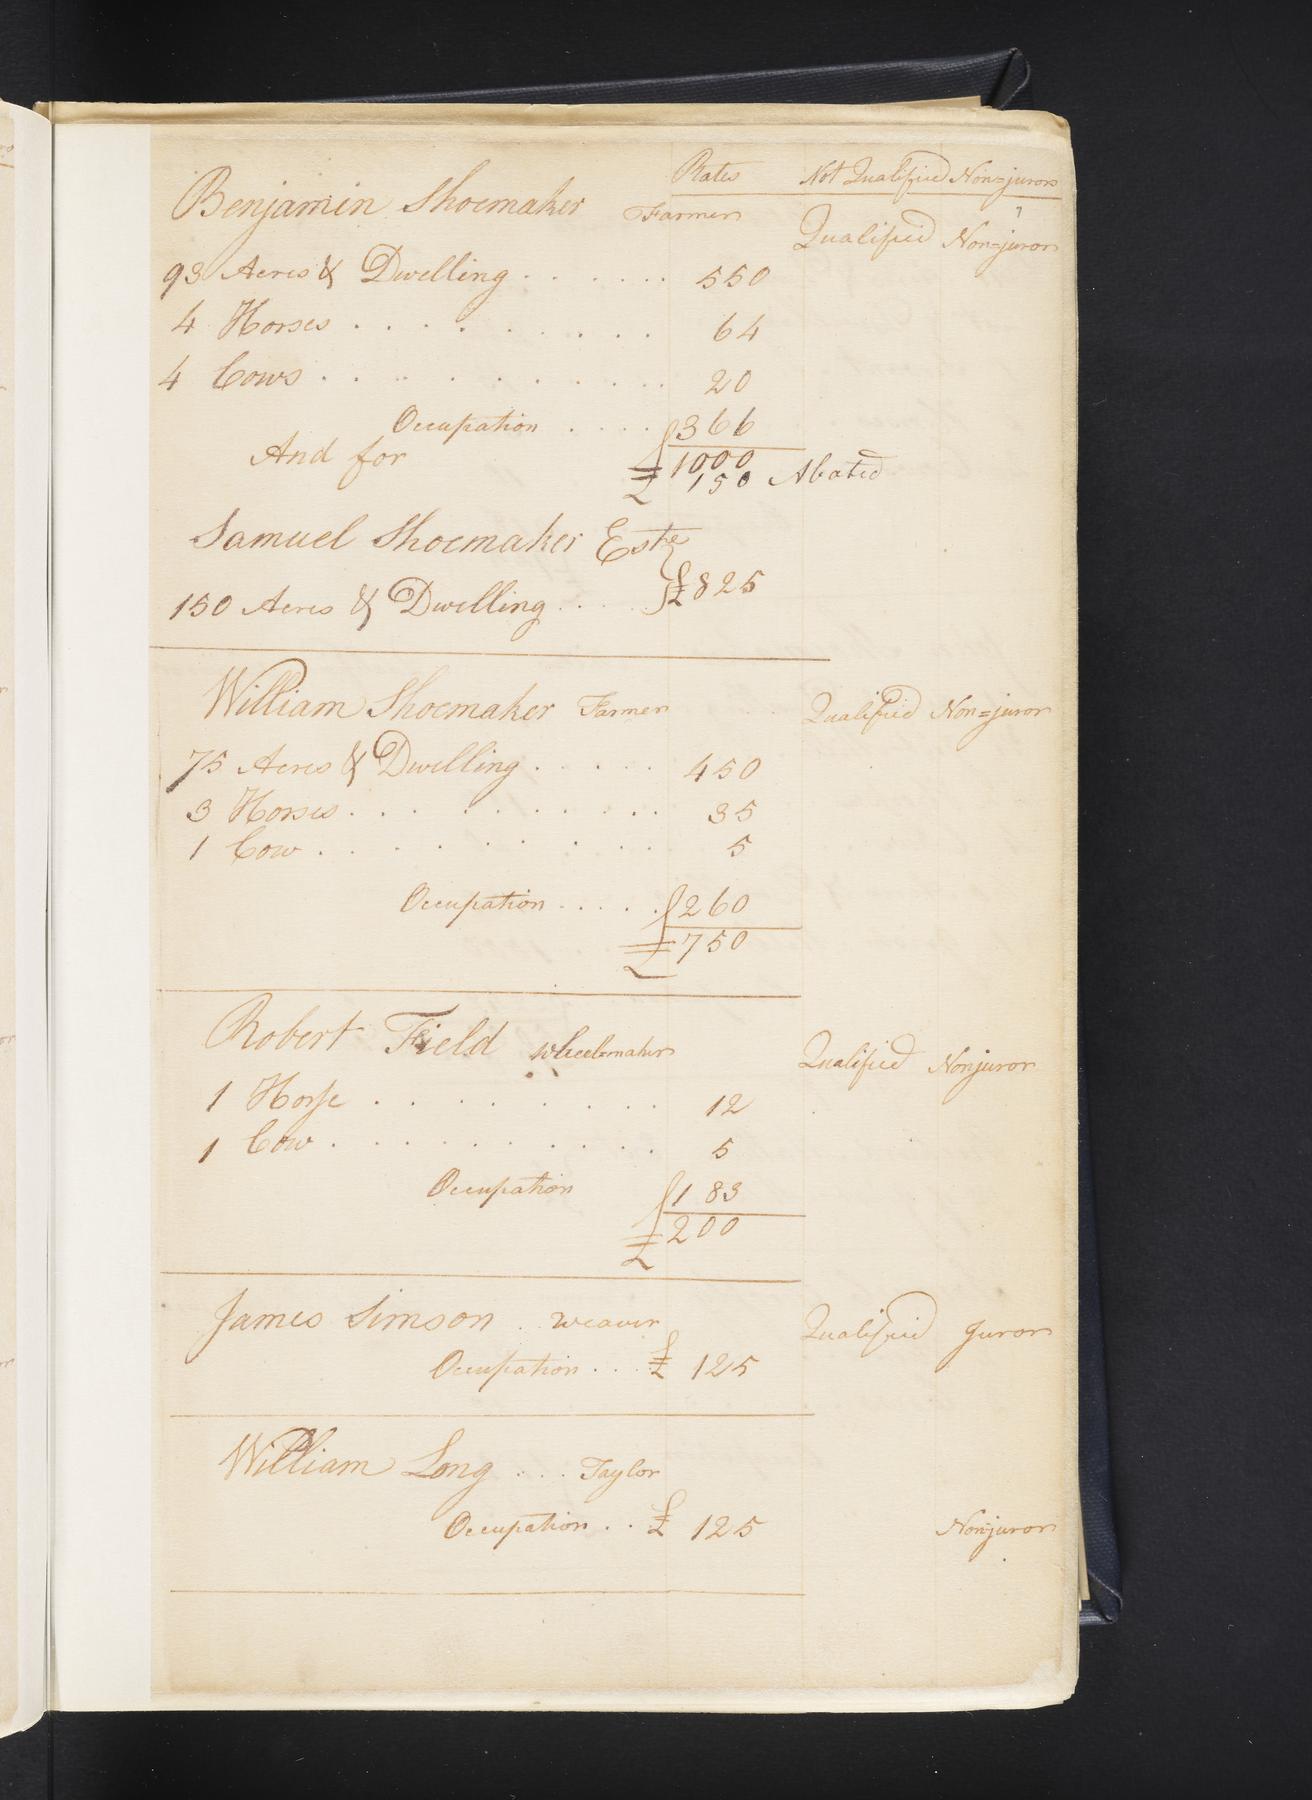 Rates Not Qualified Non=jurors
Benjamin Shoemaker Farmer Qualified Non=juror
93 Acres & Dwelling . . . . . . 550
4 Horses . . . . . . . . . 64
4 Cows . . . . . . . . . . 20
Occupation . . . . 366
And for £ 1000
£ 150 Abated
Samuel Shoemaker Este
150 Acres & Dwelling . . . . £825
William Shoemaker Farmer Qualified Non=juror
75 Acres & Dwelling . . . . . 450
3 Horses . . . . . . . . . . 35
1 Cow . . . . . . . . . . 5
Occupation . . . . . 260
£ 750
Robert Field wheelmaker Qualified Nonjuror
1 Horse . . . . . . . . . 12
1 Cow . . . . . . . . . . 5
Occupation 183
£ 200
James Simson . weaver Qualified Juror
Occupation . . . £ 125
William Long . . . Taylor
Occupation . . £ 125 Non=juror